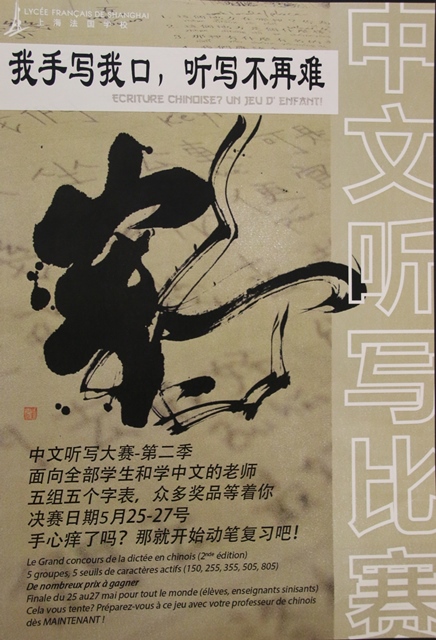 LYCÉE FRANÇAIS DE SHANGHAI
上海法国学校
我手写我口，听写不再难
ECRITURE CHINOISE? UN JEU D' ENFANT!
中文听写比赛
中文听写大赛-第二季
面向全部学生和学中文的老师
五组五个字表，众多奖品等着你
决赛日期5月25-27号
手心痒了吗？那就开始动笔复习吧！
Le Grand concours de la dictée en chinois (2nde édition)
5 groupes, 5 seuils de caractères actifs (150, 255, 355, 505, 805)
De nombreux prix à gagner
Finale du 25 au27 mai pour tout le monde (élèves, enseignants sinisants)
Cela vous tente? Préparez-vous à ce jeu avec votre professeur de chinois
dès MAINTENANT !